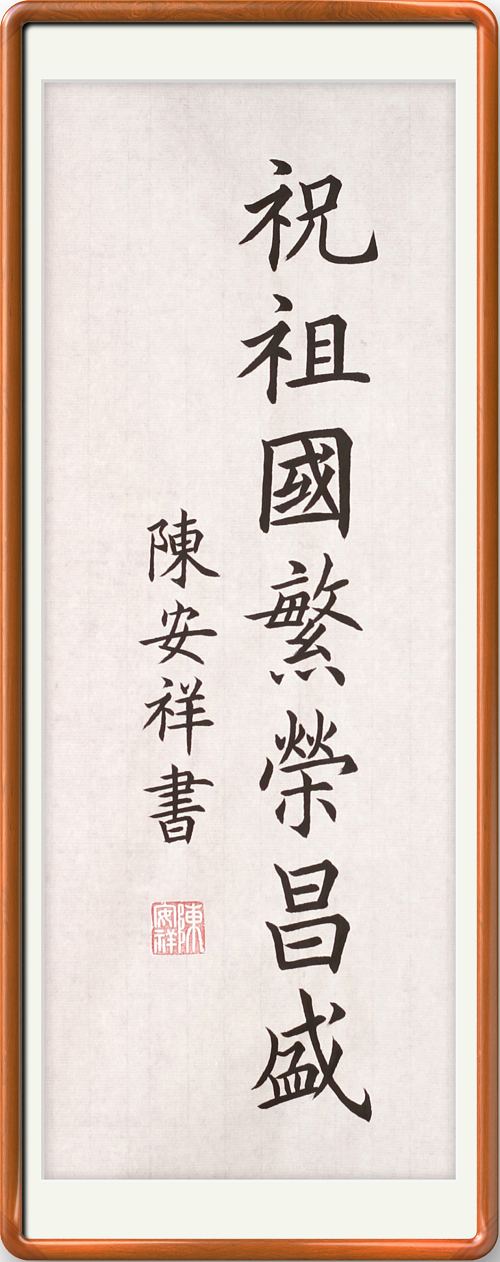 祝祖國繁榮昌盛
陳安祥書
陳安祥